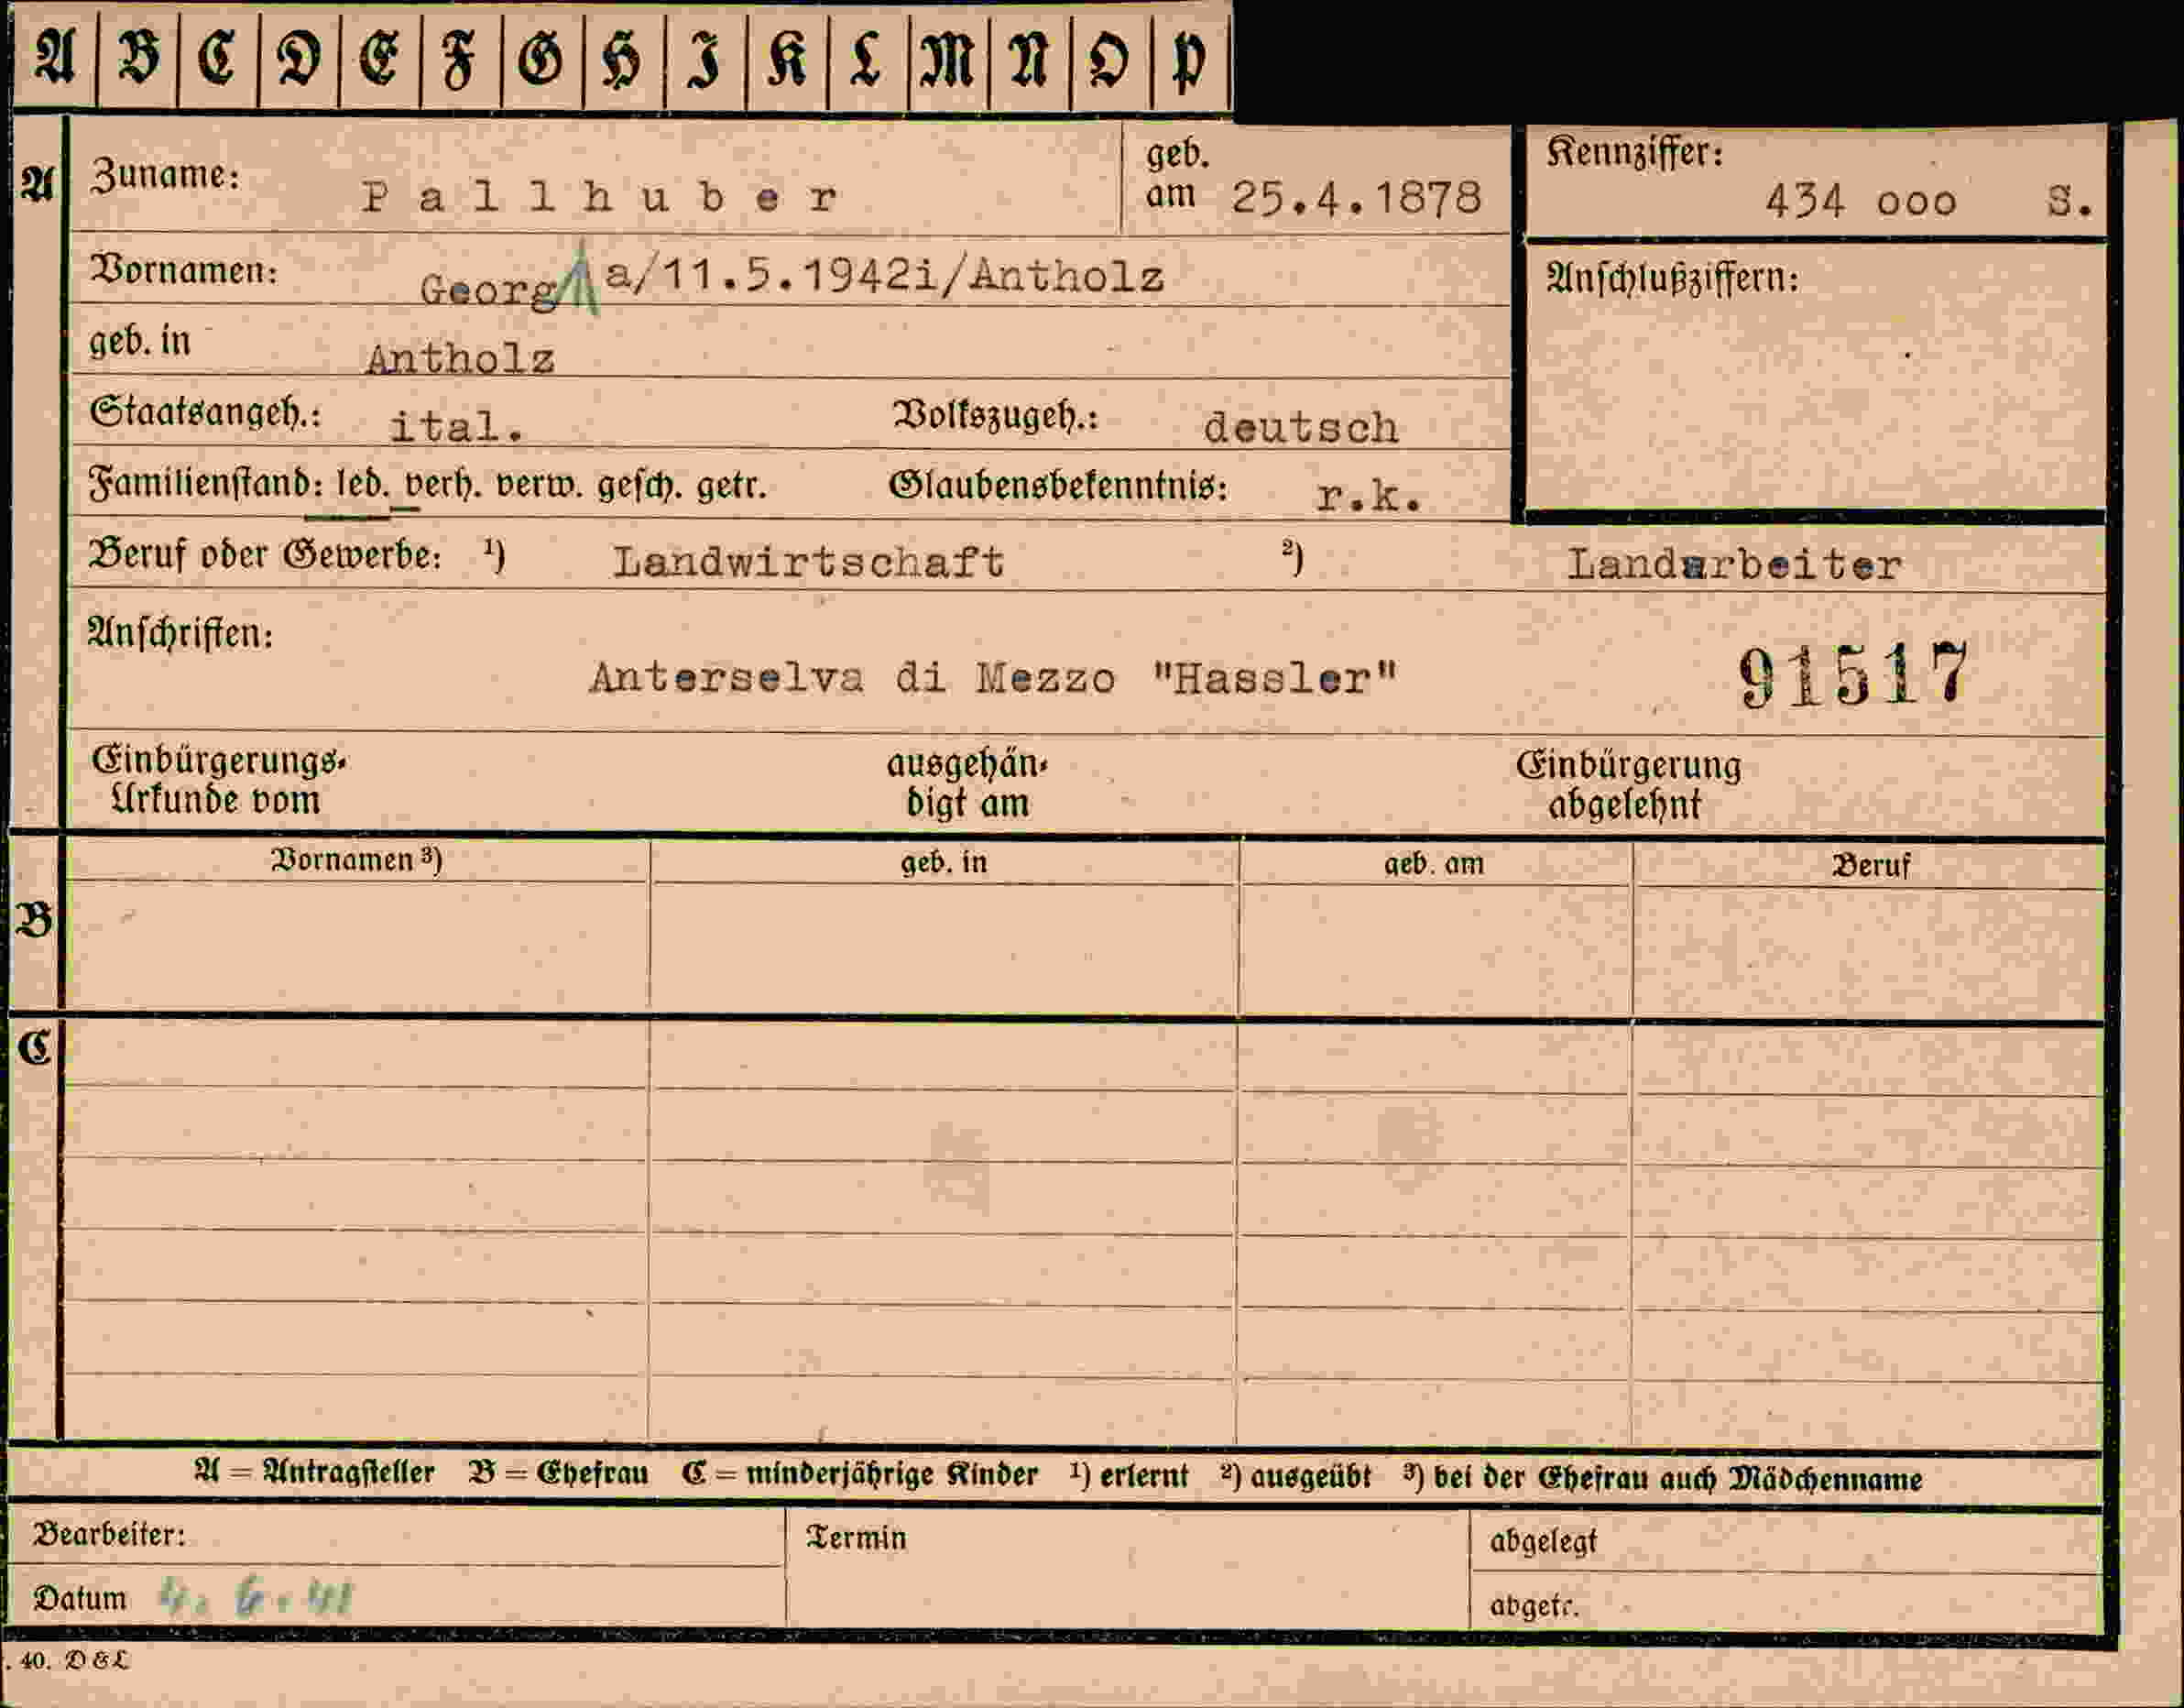 A B C D E F G H I K L M N O P
A Zuname: Pallhuber geb. am 25.4.1878 Kennziffer: 434 000 S.
Vornamen: Georg a/11.5.1942i/Antholz Anschlußziffern:
geb. in Antholz
Staatsangeh.: ital. Volkszugeh.: deutsch
Familienstand: led. verh. verw. gesch. getr. Glaubensbekenntnis: r.k.
Beruf oder Gewerbe: ¹) Landwirtschaft ²) Landarbeiter
Anschriften:
Anterselva di Mezzo "Hassler" 91517
Einbürgerungs-Urkunde vom ausgehän-digt am Einbürgerung abgelehnt
Vornamen ³) geb. in geb. am Beruf
B
C
A = Antragsteller B = Ehefrau C = minderjährige Kinder ¹) erlernt ²) ausgeübt ³) bei der Ehefrau auch Mädchenname
Bearbeiter: Termin abgelegt
Datum 4. 6. 41 abgetr.
. 40. D & L